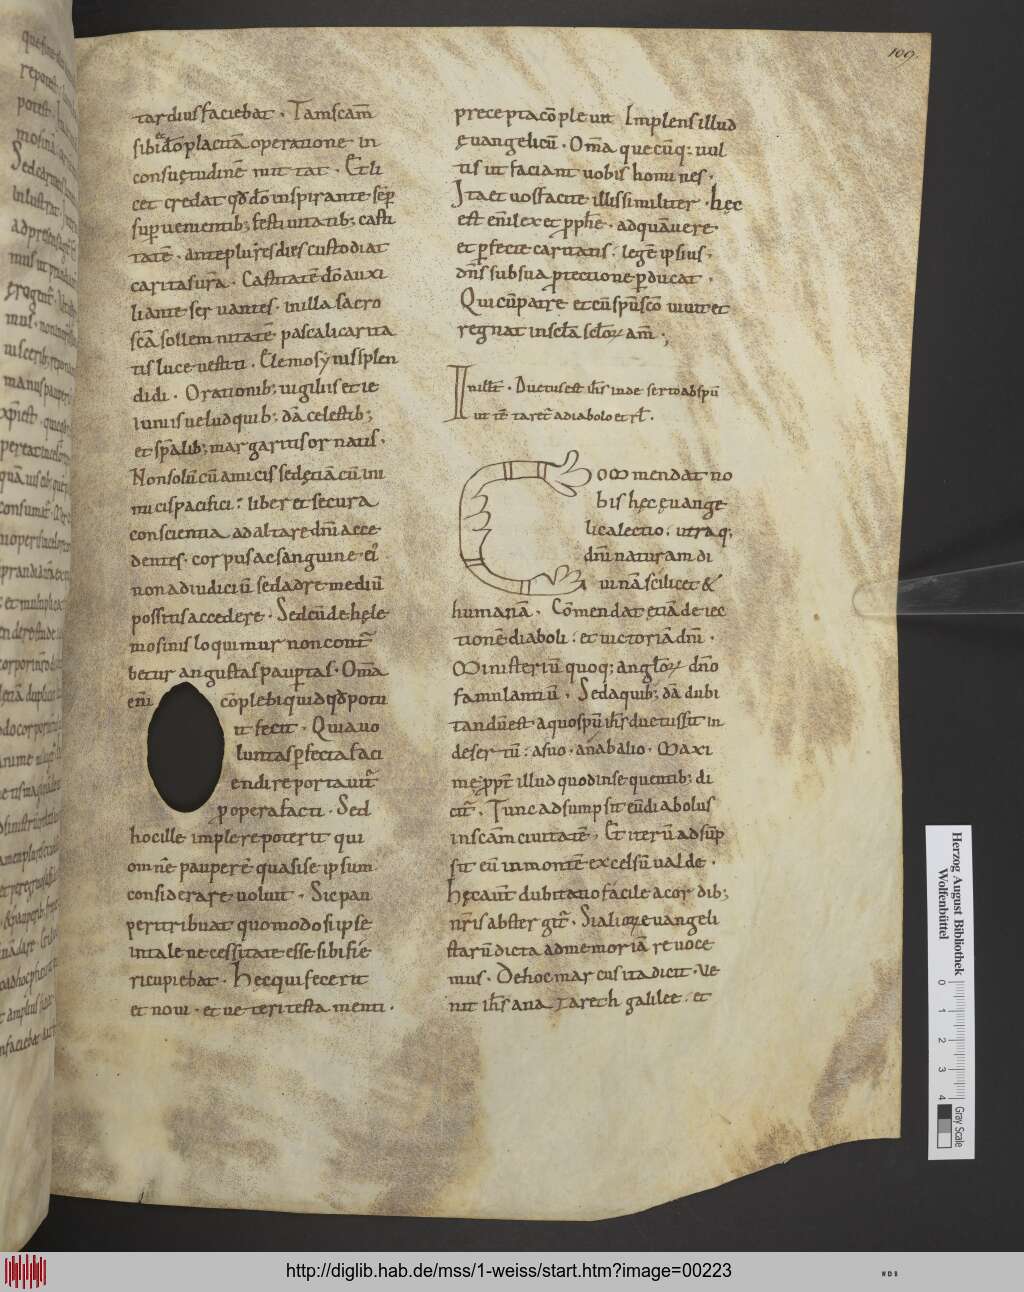 109.
tardiusfaciebat . Tamscam̄
sibi&d̄oplacitā operatione in
consuętudinē mittat . Etli
cet credat qd̄ d̄o inspirante sēp
supuenientib; festiuitatib; casti
tatē . anteplur̄esdies custodiat
caritasur̄a . Castitatē d̄o auxi
liante seruantes . inilla sacro
sc̄a sollemnitatē pascali carita
tis luce uestiti . Elemosynis splen
didi . Orationib; uigiliis et ie
iuniis uelud quib; dā celestib;
et sp̄alib; margaritis ornatis .
Nonsolū cū amicis sed ętiā cū ini
micis pacifici : liber et secura
conscientia ad altare dn̄i acce
dentes . corpus ac sanguinē ei'
non ad iudiciū sed ad remediū
possitis accedere . Sed cū de hęle
mosinis loquimur non cont̄
betur angustas paup̄tas . Om̄a
eni͞m cōplebi quid qd̄ potu
it fecit . Quia uo
luntas p̄fecta faci
endi reportauit̄
p opera facti . Sed
hoc ille implere poterit qui
omnē pauperē quasi se ipsum
considerare uoluit . Sic pau
peri tribuat quomodo si ipse
in tale necessitate esse sibi fie
ri cupiebat . Hęc qui fecerit
et noui . et ueteri testamenti .
precepta cōpleuit Implens illud
ęuangelicū . Om̄a quecūq; uul
tis ut faciant uobis homines .
Ita et uos facite illis similiter . hęc
est eni͞m lex et p̄phē . ad quā uere
et p̄fecte caritatis . legē ipsius ;
dn̄s sub sua p̄tectione p̄ducat .
Qui cū patre et cū sp̄u sc̄o uiuit et
regnat in sc̄la sc̄loꝝ am̄ . ;
In ill t̄ . Ductus est ih̄s in deserto ab sp̄u
ut tētaret̄ a diabolo et rl̄ .
Commendat no
bis hęc ęuange
lica lectio . utraq;
dn̄i naturam di
uinā scilicet &
humanā . Cōmendat etiā deiec
tionē diaboli : et uictoriā dn̄i .
Ministeriū quoq; angl̄oꝝ dn̄o
famulantiū . Sed a quib; dā dubi
tandū est a quo sp̄u ih̄s ductus sit in
desertū : a suo . an a balio . Maxi
mę p̄pt̄ illud quod in sequentib; di
cit̄ . Tunc adsumpsit eū diabolus
in scām ciuitatē . Et iterū adsūp
sit eū in montē excelsū ualde .
Hęc aut̄ dubitatio facile a cordib;
nr̄is abstergit̄ . Si alioꝝ euangeli
starū dicta ad memoriā reuoce
mus . De hoc marcus ita dicit . Ve
nit ih̄s a nazareth galilee . et
Herzog August Bibliothek
Wolfenbüttel
0 1 2 3 4
Gray Scale
http://diglib.hab.de/mss/1-weiss/start.htm?image=00223